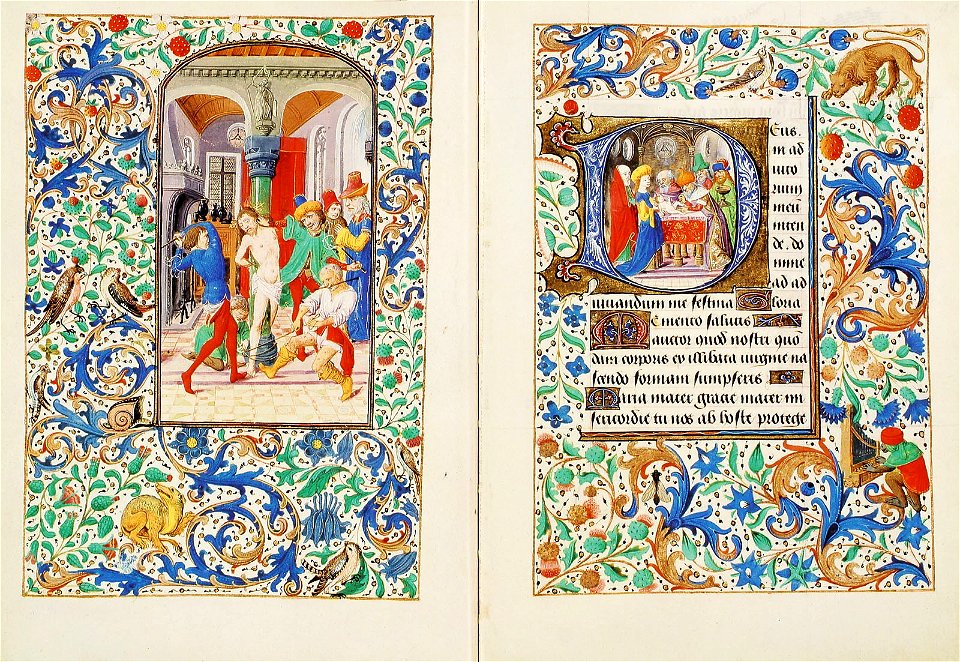 DEus.
In ad
iuto
rium
meū
inten
de. do
mine
ad ad
iuuandum me festina Gloria
Memento salutis
auctor quod nostri quo
dam corporis ex illibata uirgine na
scendo formam sumpseris
Maria mater gracie mater mi
sericordie tu nos ab hoste protege